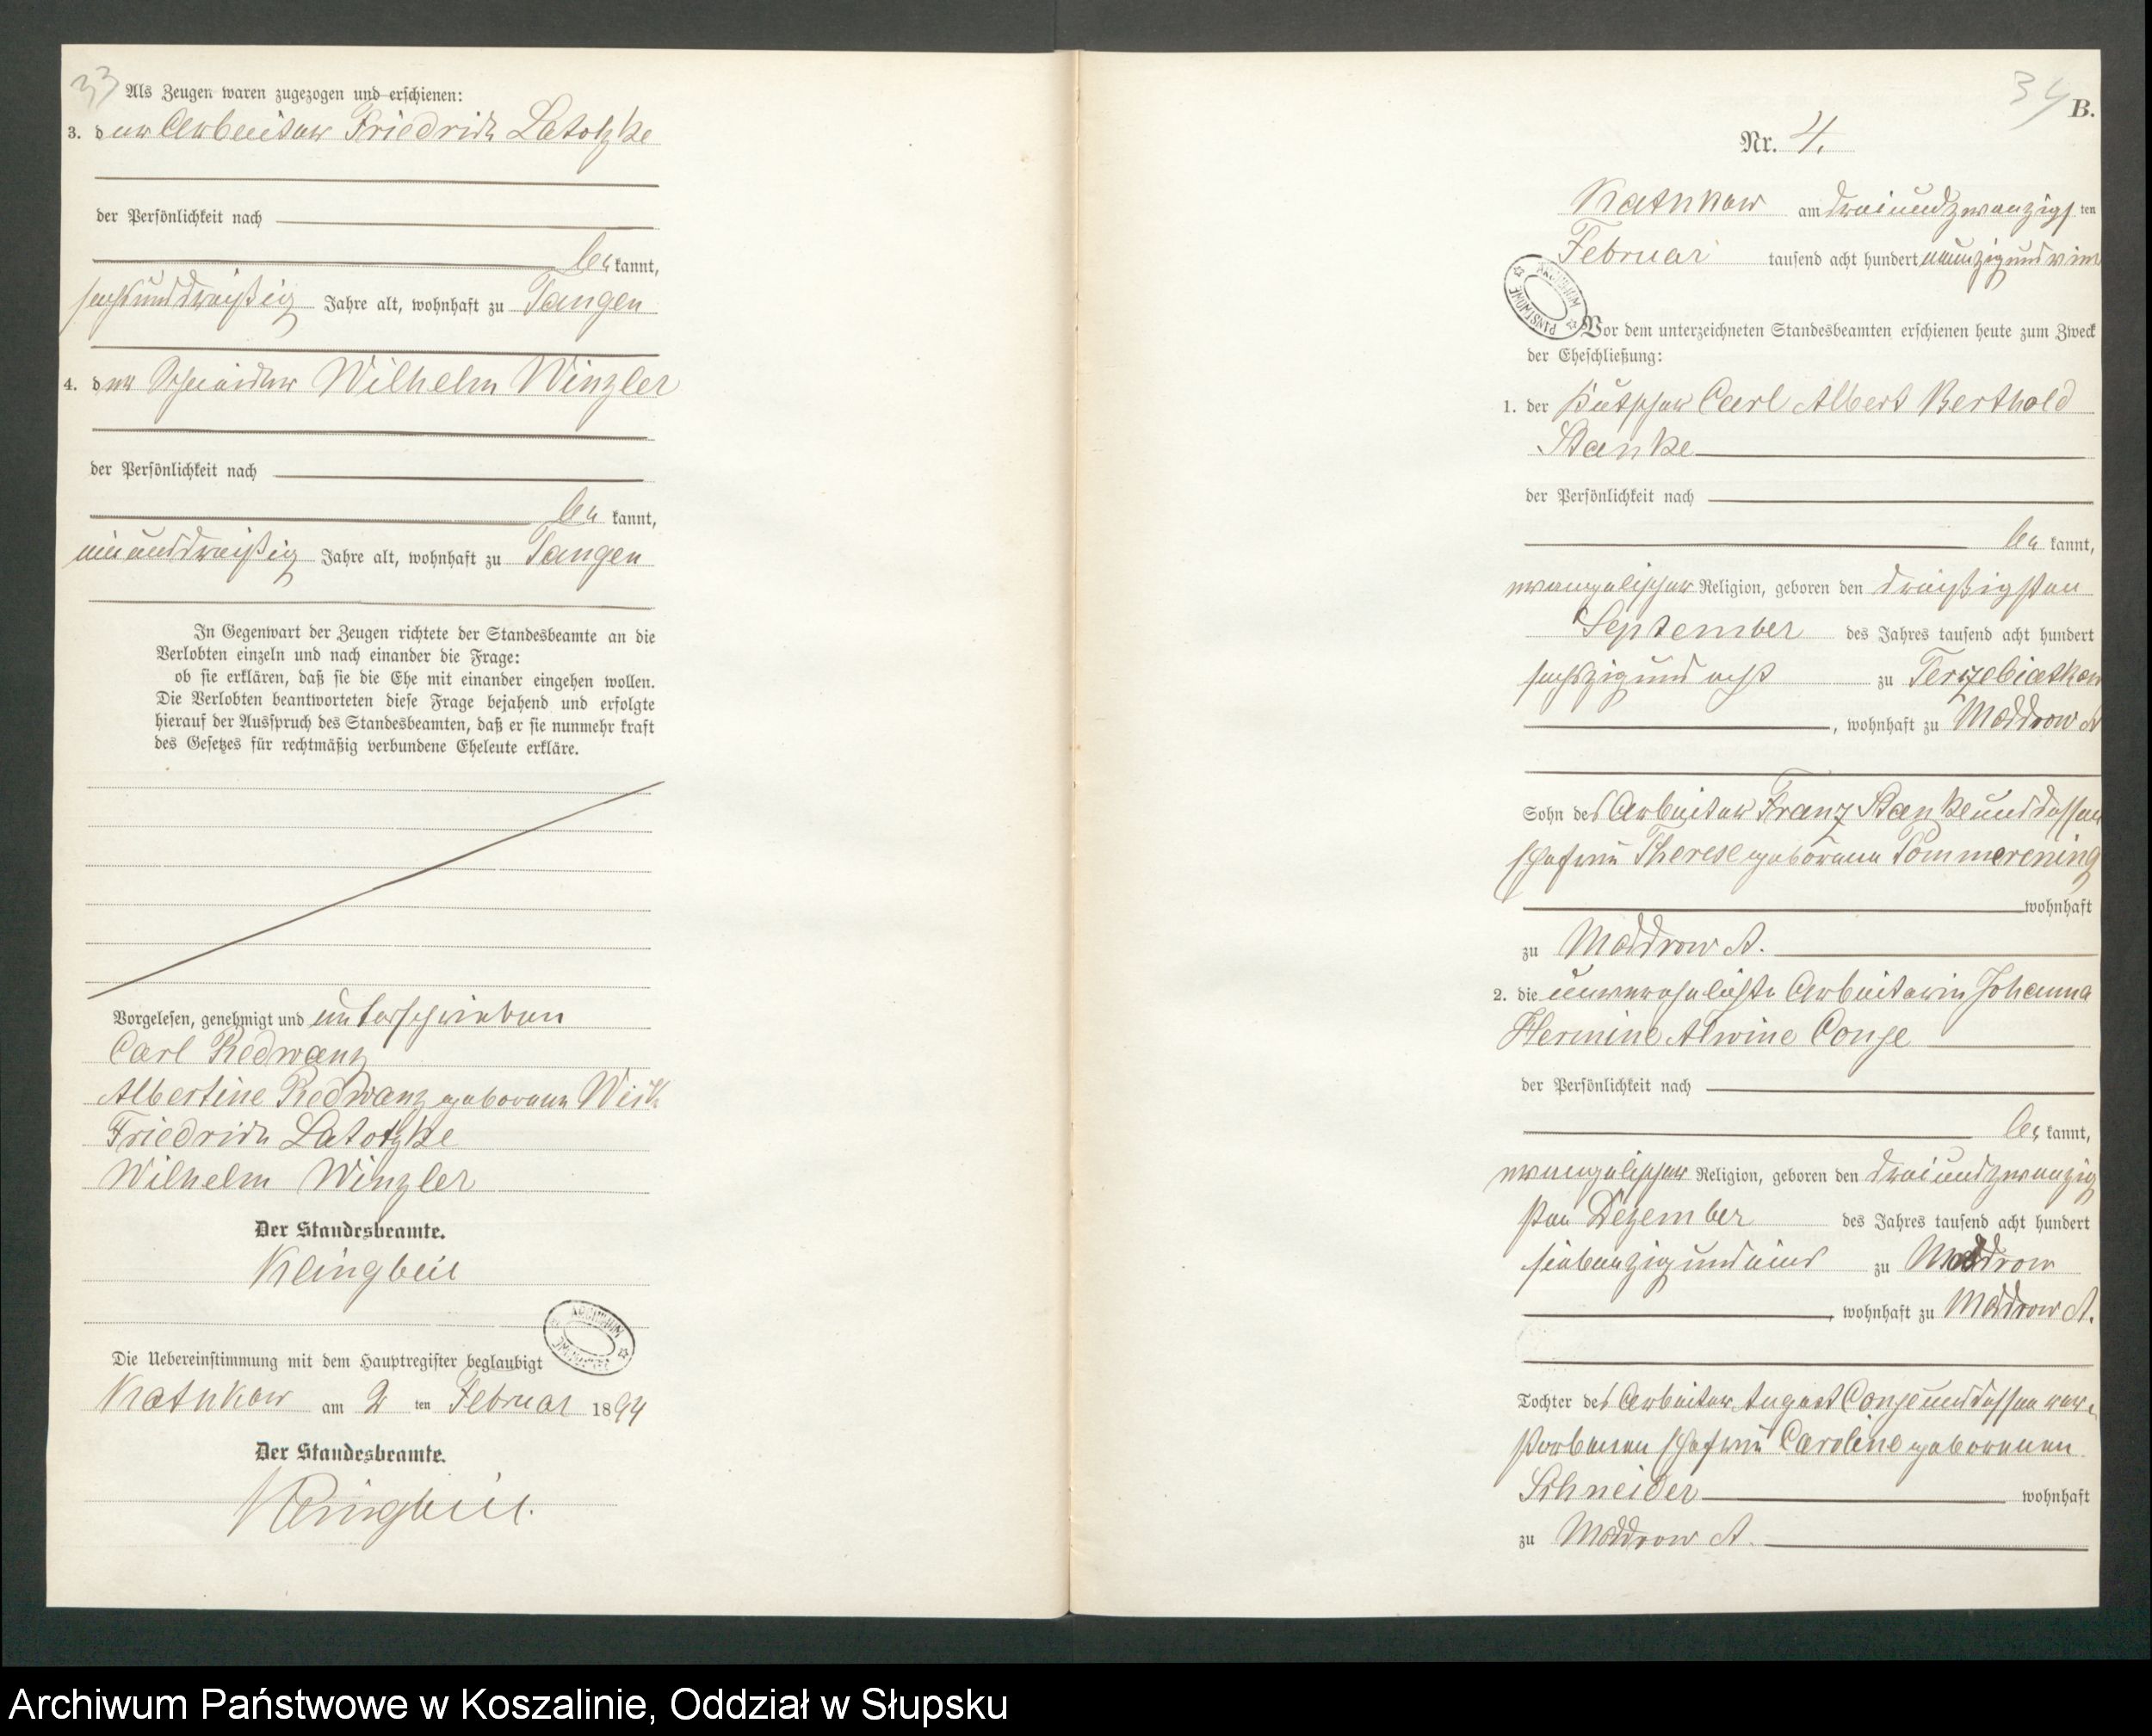 33
Als Zeugen waren zugezogen und erschienen:
3. der Arbeiter Friedrich Latotzke
der Persönlichkeit nach
be kannt,
sechsunddreißig Jahre alt, wohnhaft zu Tangen
4. der Schneider Wilhelm Winzler
der Persönlichkeit nach
be kannt,
einunddreißig Jahre alt, wohnhaft zu Tangen
In Gegenwart der Zeugen richtete der Standesbeamte an die
Verlobten einzeln und nach einander die Frage:
ob sie erklären, daß sie die Ehe mit einander eingehen wollen.
Die Verlobten beantworteten diese Frage bejahend und erfolgte
hierauf der Ausspruch des Standesbeamten, daß er sie nunmehr kraft
des Gesetzes für rechtmäßig verbundene Eheleute erkläre.
Vorgelesen, genehmigt und unterschrieben
Carl Redwanz
Albertine Redwanz geborene
Friedrich Latotzke
Wilhelm Winzler
Der Standesbeamte.
Klingbeil
ARCHIWUM
Die Uebereinstimmung mit dem Hauptregister beglaubigt
Kathkow am 2 ten Februar 1894
Der Standesbeamte.
Klingbeil.
34
B.
Nr. 4.
Kathkow am dreiundzwanzigs ten
Februar tausend acht hundert neunzig und vier
ARCHIWUM PAŃSTWOWE
Vor dem unterzeichneten Standesbeamten erschienen heute zum Zweck
der Eheschließung:
1. der Kutscher Carl Albert Berthold
Stanke
der Persönlichkeit nach
be kannt,
evangelischer Religion, geboren den dreißigsten
September des Jahres tausend acht hundert
sechszig und acht zu Terzebiatkow
, wohnhaft zu Moddrow A
Sohn des Arbeiter Franz Stanke und dessen
Ehefrau Therese geborene Pommerening
wohnhaft
zu Moddrow A.
2. die unverehelichte Arbeiterin Johanna
Hermine Alwine Conje
der Persönlichkeit nach
be kannt,
evangelischer Religion, geboren den dreiundzwanzig
sten Dezember des Jahres tausend acht hundert
siebenzig und eins zu Moddrow
, wohnhaft zu Moddrow A.
Tochter des Arbeiter August Conje und dessen ver
storbenen Ehefrau Caroline geborenen
Schneider wohnhaft
zu Moddrow A.
Archiwum Państwowe w Koszalinie, Oddział w Słupsku